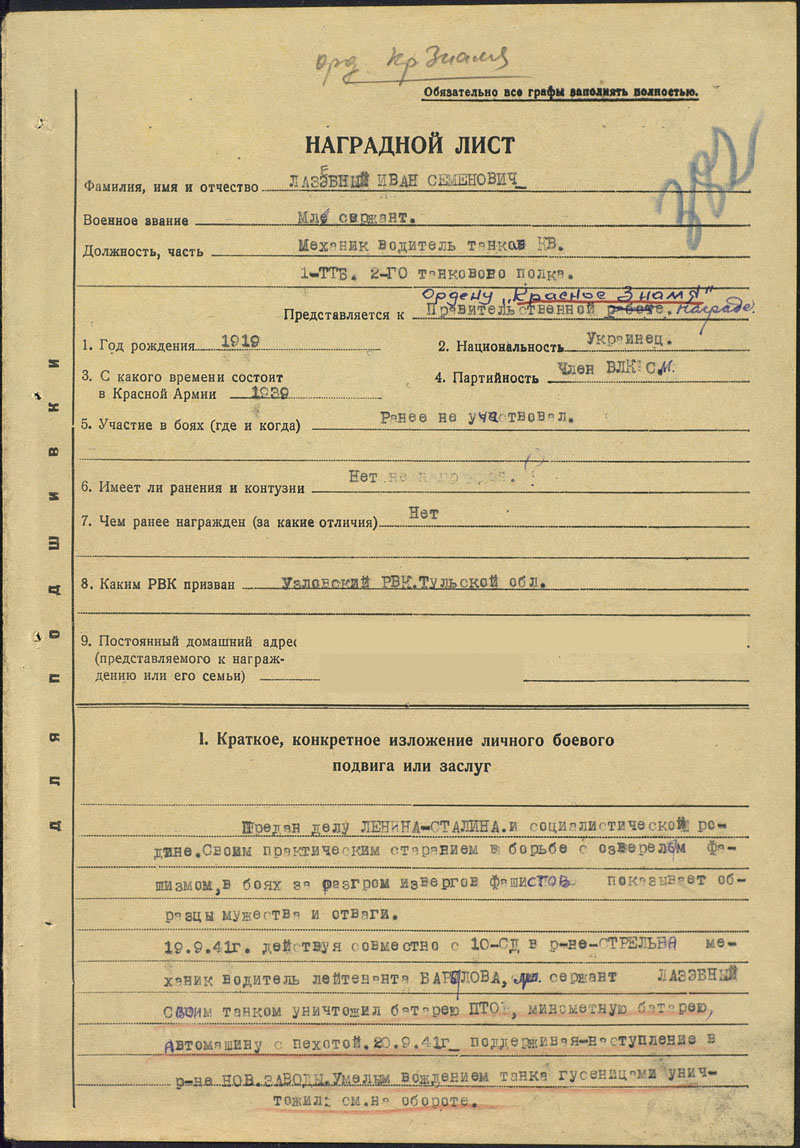 орд. Кр Знамя
Обязательно все графы заполнять полностью.
НАГРАДНОЙ ЛИСТ
Фамилия, имя и отчество ЛАЗЕБНЫЙ ИВАН СЕМЕНОВИЧ_
Военное звание Мл. сержант.
Должность, часть Механик водитель танков КВ.
1-ТТБ. 2-ГО танкового полка.
Ордену „Красное Знамя"
Представляется к Правительственной награде.
1. Год рождения 1919
2. Национальность Украинец.
3. С какого времени состоит
в Красной Армии 1939
4. Партийность Член ВЛКСМ.
5. Участие в боях (где и когда) Ранее не участвовал.
6. Имеет ли ранения и контузии Нет
7. Чем ранее награжден (за какие отличия) Нет
8. Каким РВК призван Узловский РВК.Тульской обл.
9. Постоянный домашний адрес
(представляемого к награж-
дению или его семьи)
Для подшивки
1. Краткое, конкретное изложение личного боевого
подвига или заслуг
Предан делу ЛЕНИНА-СТАЛИНА.и социалистической ро-
дине.Своим практическим старанием в борьбе с озверелым фа-
шизмом,в боях за разгром извергов фашистов показывает об-
разцы мужества и отваги.
19.9.41г. действуя совместно с 10-СД в р-не-СТРЕЛЬНА ме-
ханик водитель лейтенанта сержант ЛАЗЭБНЫЙ
Своим танком уничтожил батарею ПТО, минометную батарею,
Автомашину с пехотой.20.9.41г_ поддерживая-наступление в
р-на НОВ.ЗАВОДЫ.Умелым вождением танка гусеницами унич-
тожил: см.на обороте.